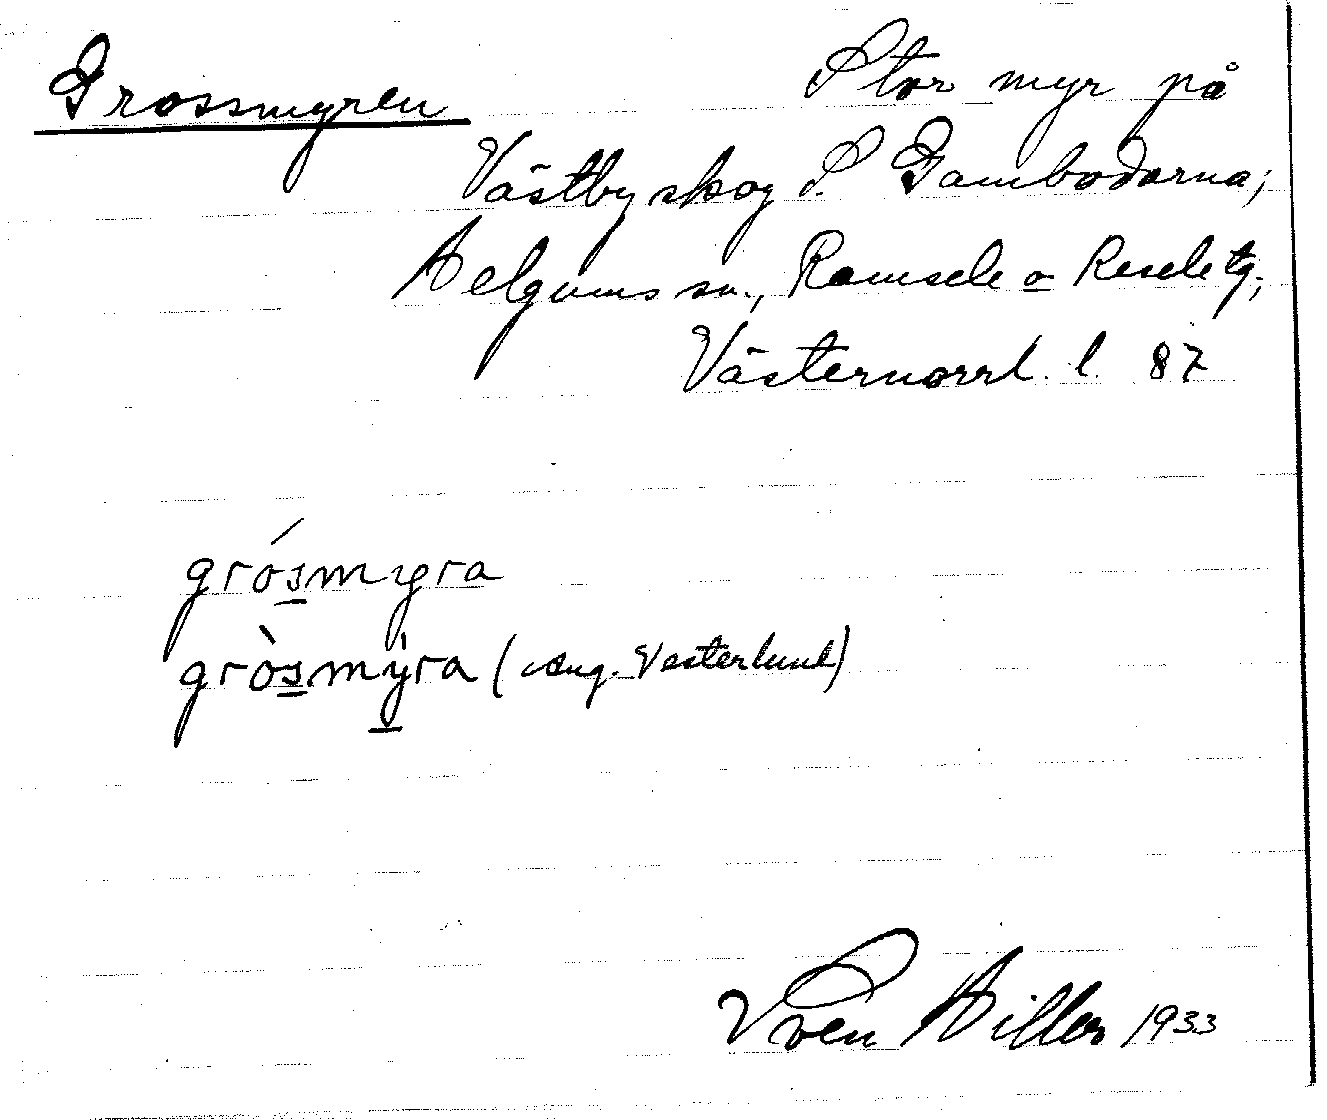 Grossmyren Stor myr på
Västby skog S. Gambodarna;
Helgums sn., Ramsele o Resele tg,
Västernorrl. l. 87
grósmyra
gròsmy̍ra (Aug. Vesterlund)
Sven Hiller 1933